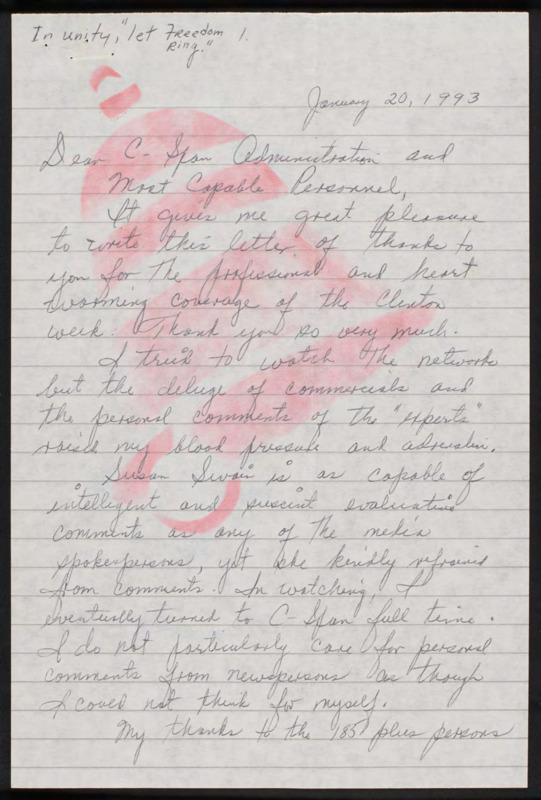 In unity, "let Freedom 1.
Ring."
January 20, 1993
Dear C-Span Administration and
Most Capable Personnel,
It gives me great pleasure
to write this letter of thanks to
you for the professional and heart
warming coverage of the Clinton
week. Thank you so very much.
I tried to watch the network
but the deluge of commercials and
the personal comments of the "experts"
raised my blood pressure and adrenalin.
Susan Swain is as capable of
intelligent and evaluative
comments as any of the media
spokespersons, yet she kindly refrained
from comments. In watching, I
eventually turned to C-Span full time.
I do not particularly care for personal
comments from newspersons as though
I could not think for myself.
My thanks to the 185 plus persons